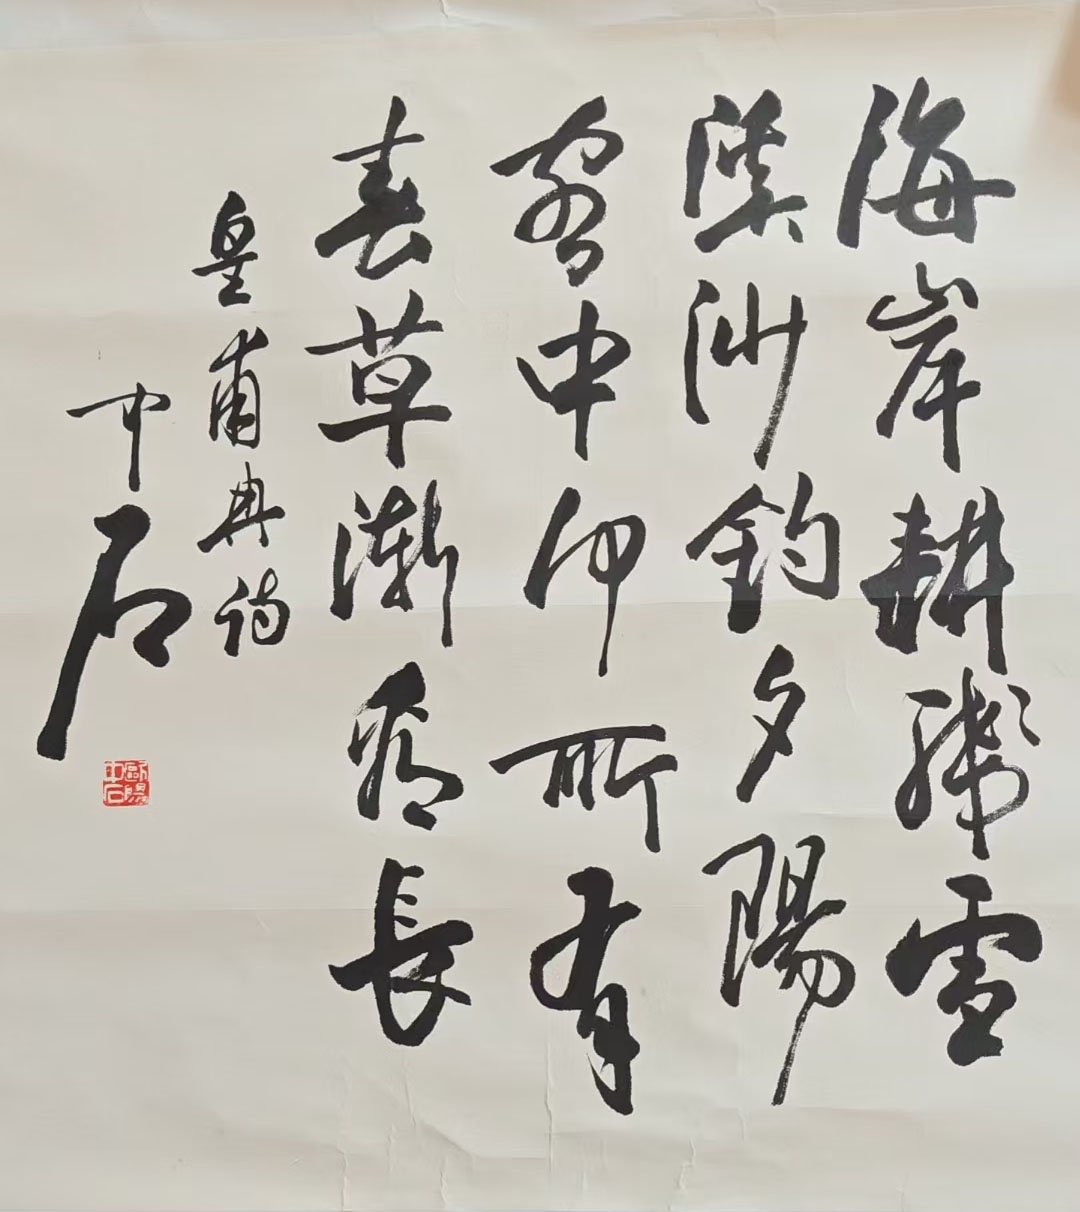 海岸耕殘雪
溪沙釣夕陽
客中何所有
春草漸看長
皇甫冉詩
中石
歐陽中石